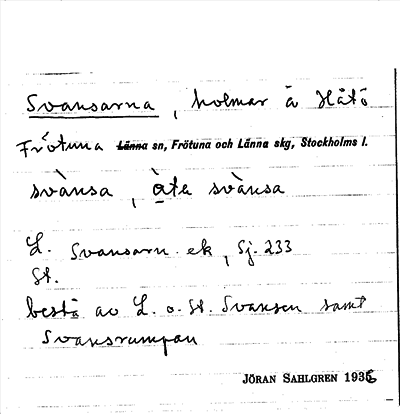 Svansarna, holmar å Håtö
Frötuna Länna sn, Frötuna och Länna skg, Stockholms l.
svànsa, àta svànsa
L. Svansarn ek, Sj. 233
St.
bestå av L. o. St. Svansen samt
Svansrumpan
JÖRAN SAHLGREN 1935